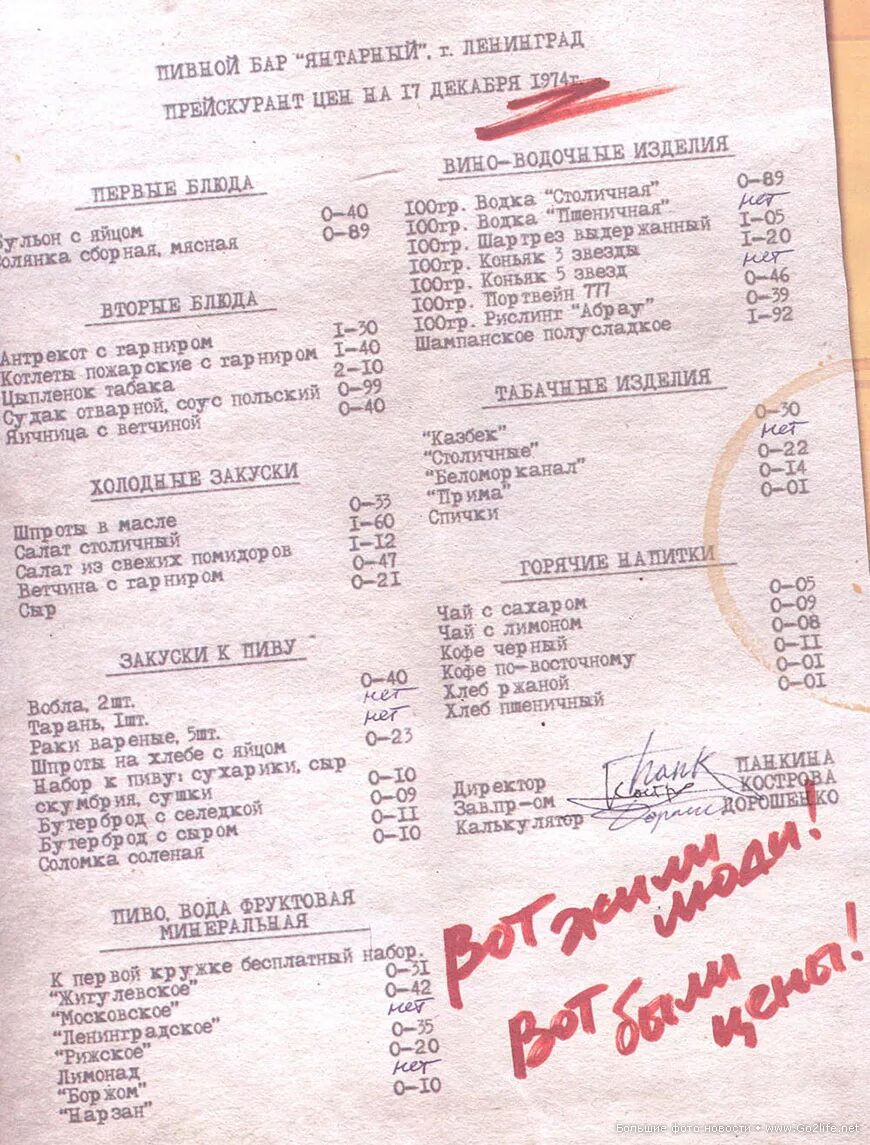 ПИВНОЙ БАР "ЯНТАРНЫЙ", г. ЛЕНИНГРАД
ПРЕЙСКУРАНТ ЦЕН НА 17 ДЕКАБРЯ 1974г.
ПЕРВЫЕ БЛЮДА
ульон с яйцом 0-40
олянка сборная, мясная 0-89
ВТОРЫЕ БЛЮДА
Антрекот с гарниром 1-30
Котлеты пожарские с гарниром 1-40
Цыпленок табака 2-10
Судак отварной, соус польский 0-99
Яичница с ветчиной 0-40
ХОЛОДНЫЕ ЗАКУСКИ
Шпроты в масле 0-33
Салат столичный 1-60
Салат из свежих помидоров 1-12
Ветчина с гарниром 0-47
Сыр 0-21
ЗАКУСКИ К ПИВУ
Вобла, 2шт. 0-40
Тарань, 1шт. нет
Раки вареные, 5шт. нет
Шпроты на хлебе с яйцом 0-23
Набор к пиву: сухарики, сыр
скумбрия, сушки 0-10
Бутерброд с селедкой 0-09
Бутерброд с сыром 0-11
Соломка соленая 0-10
ПИВО, ВОДА ФРУКТОВАЯ
МИНЕРАЛЬНАЯ
К первой кружке бесплатный набор.
"Жигулевское" 0-31
"Московское" 0-42
"Ленинградское" нет
"Рижское" 0-35
Лимонад 0-20
"Боржом" нет
"Нарзан" 0-10
ВИНО-ВОДОЧНЫЕ ИЗДЕЛИЯ
100гр. Водка "Столичная" 0-89
100гр. Водка "Пшеничная" нет
100гр. Шартрез выдержанный 1-05
100гр. Коньяк 3 звезды 1-20
100гр. Коньяк 5 звезд нет
100гр. Портвейн 777 0-46
100гр. Рислинг "Абрау" 0-39
Шампанское полусладкое 1-92
ТАБАЧНЫЕ ИЗДЕЛИЯ
"Казбек" 0-30
"Столичные" нет
"Беломорканал" 0-22
"Прима" 0-14
Спички 0-01
ГОРЯЧИЕ НАПИТКИ
Чай с сахаром 0-05
Чай с лимоном 0-09
Кофе черный 0-08
Кофе по-восточному 0-11
Хлеб ржаной 0-01
Хлеб пшеничный 0-01
Директор ПАНКИНА
Зав.пр-ом КОСТРОВА
Калькулятор ДОРОШЕНКО
Вот жили
люди!
Вот были
цены!
Большие фото новости - www.Go2life.net